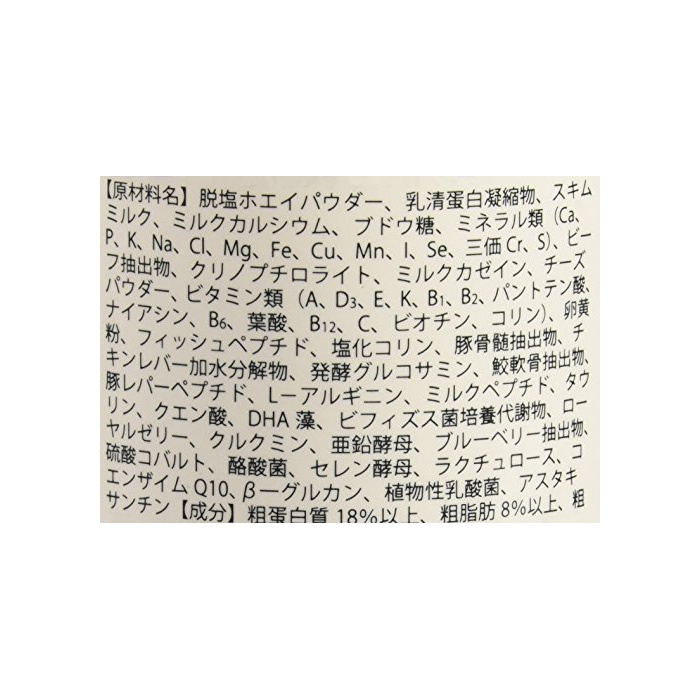 【原材料名】脱塩ホエイパウダー、乳清蛋白凝縮物、スキム
ミルク、ミルクカルシウム、ブドウ糖、ミネラル類（Ca、
P、K、Na、Cl、Mg、Fe、Cu、Mn、I、Se、三価Cr、S）、ビー
フ抽出物、クリノプチロライト、ミルクカゼイン、チーズ
パウダー、ビタミン類（A、D₃、E、K、B₁、B₂、パントテン酸、
ナイアシン、B₆、葉酸、B₁₂、C、ビオチン、コリン）、卵黄
粉、フィッシュペプチド、塩化コリン、豚骨髄抽出物、チ
キンレバー加水分解物、発酵グルコサミン、鮫軟骨抽出物、
豚レバーペプチド、L－アルギニン、ミルクペプチド、タウ
リン、クエン酸、DHA藻、ビフィズス菌培養代謝物、ロー
ヤルゼリー、クルクミン、亜鉛酵母、ブルーベリー抽出物、
硫酸コバルト、酪酸菌、セレン酵母、ラクチュロース、コ
エンザイムQ10、β－グルカン、植物性乳酸菌、アスタキ
サンチン【成分】粗蛋白質18％以上、粗脂肪8％以上、粗